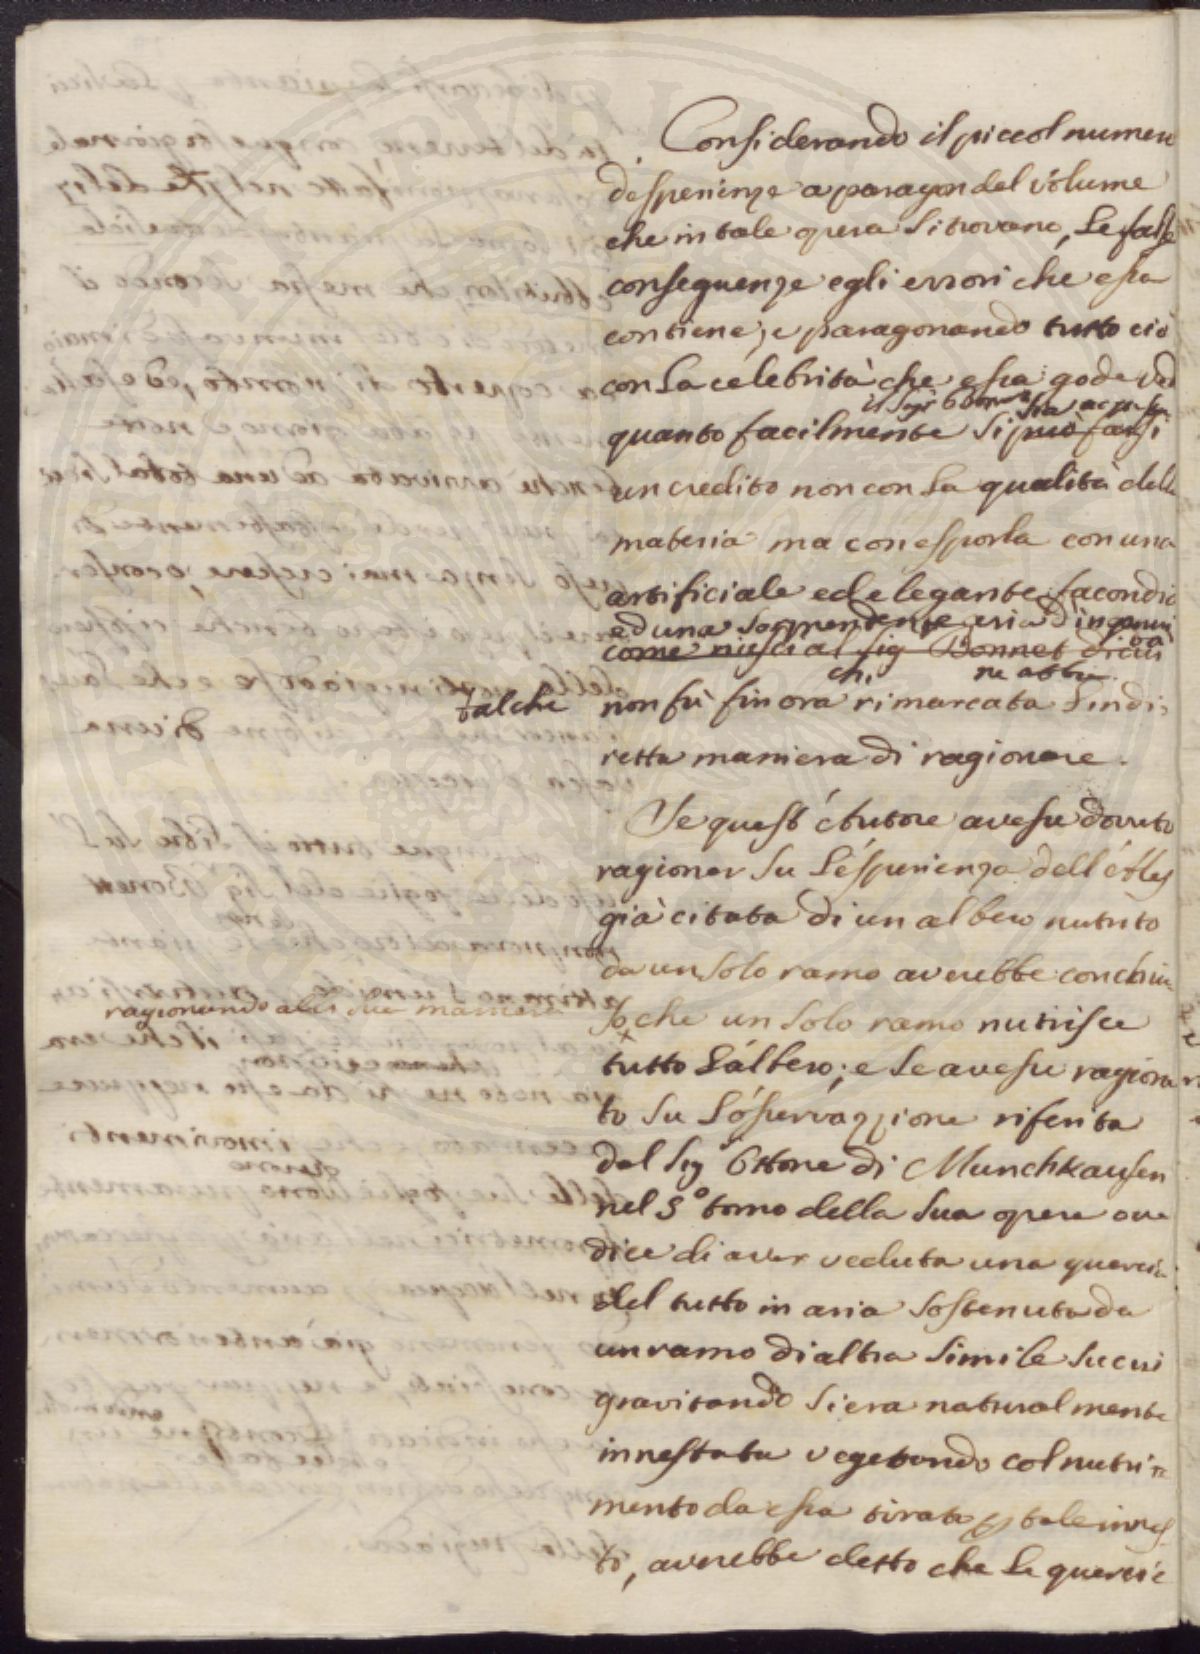 Considerando il piccol numero
d'esperienze a paragon del volume
che in tale opera si trovano, Le false
conseguenze e gli errori che essa
contiene; e paragonando tutto ciò
con La celebrità che essa gode ved
il Sigr Bonnet sia acquis
quanto facilmente si può farsi
un credito non con La qualità della
materia ma con esporla con una
artificiale ed elegante facondia
ed una sorprendente aria d'ingenui
come riuscì al Sig Bonnet di cui
tà
ch. ne abbia
talche non fù fin ora rimarcata L'indi=
retta maniera di ragionare.
Se quest'Autore avesse dovuto
ragionar su L'esperienza dell'Ales
già citata di un albero nutrito
da un solo ramo averebbe conchiu=
ragionando alla sua maniera
so, che un solo ramo nutrisce
tutto L'albero; e se avesse ragiona
to su L'osservazzione riferita
dal Sig Ottone di Munchkausen
nel 5° tomo della sua opera ove
dice di aver veduta una quercia
del tutto in aria sostenuta da
un ramo di altra simile su cui
gravitando si era naturalmente
innestata vegetando col nutri=
mento da essa tirato p tale innes
to, averebbe detto che Le quercie